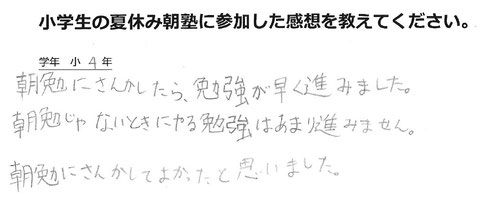 小学生の夏休み朝塾に参加した感想を教えてください。
学年 小 4 年
朝勉にさんかしたら、勉強が早く進みました。
朝勉じゃないときにやる勉強はあまり進みません。
朝勉にさんかしてよかったと思いました。